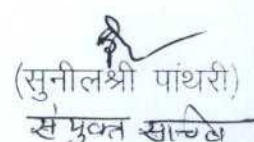 (सुनीलश्री पांथरी)
संयुक्त सचिव